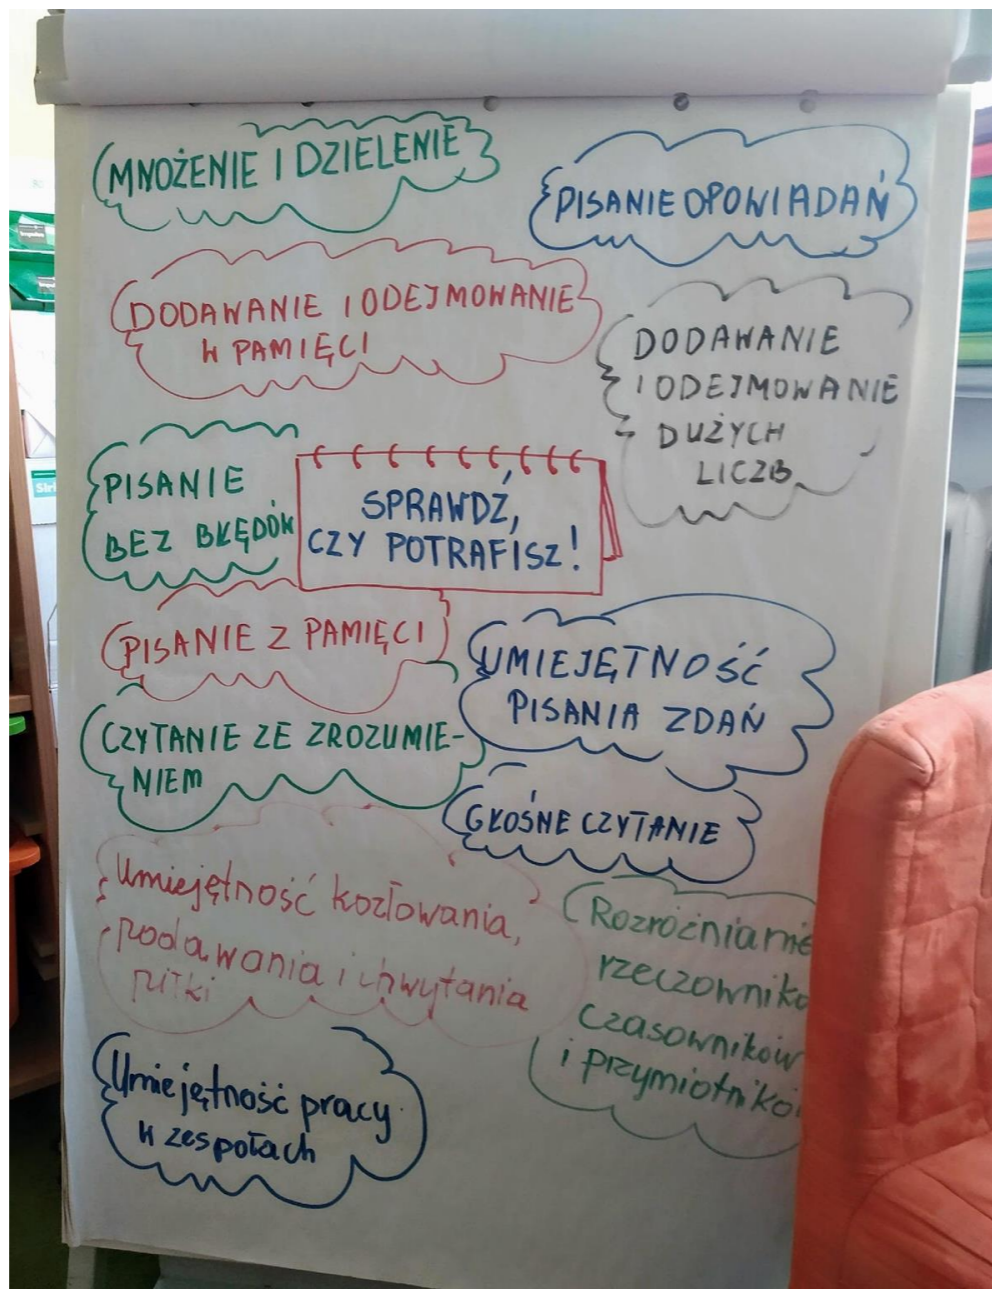 MNOŻENIE I DZIELENIE
PISANIE OPOWIADAŃ
DODAWANIE I ODEJMOWANIE
W PAMIĘCI
DODAWANIE
I ODEJMOWANIE
DUŻYCH
LICZB
PISANIE
BEZ BŁĘDÓW
SPRAWDŹ,
CZY POTRAFISZ!
PISANIE Z PAMIĘCI
UMIEJĘTNOŚĆ
PISANIA ZDAŃ
CZYTANIE ZE ZROZUMIE-
NIEM
GŁOŚNE CZYTANIE
Umiejętność kozłowania,
podawania i chwytania
piłki
Rozróżnianie
rzeczownikó
czasowników
i przymiotnikó
Umiejętność pracy
w zespołach